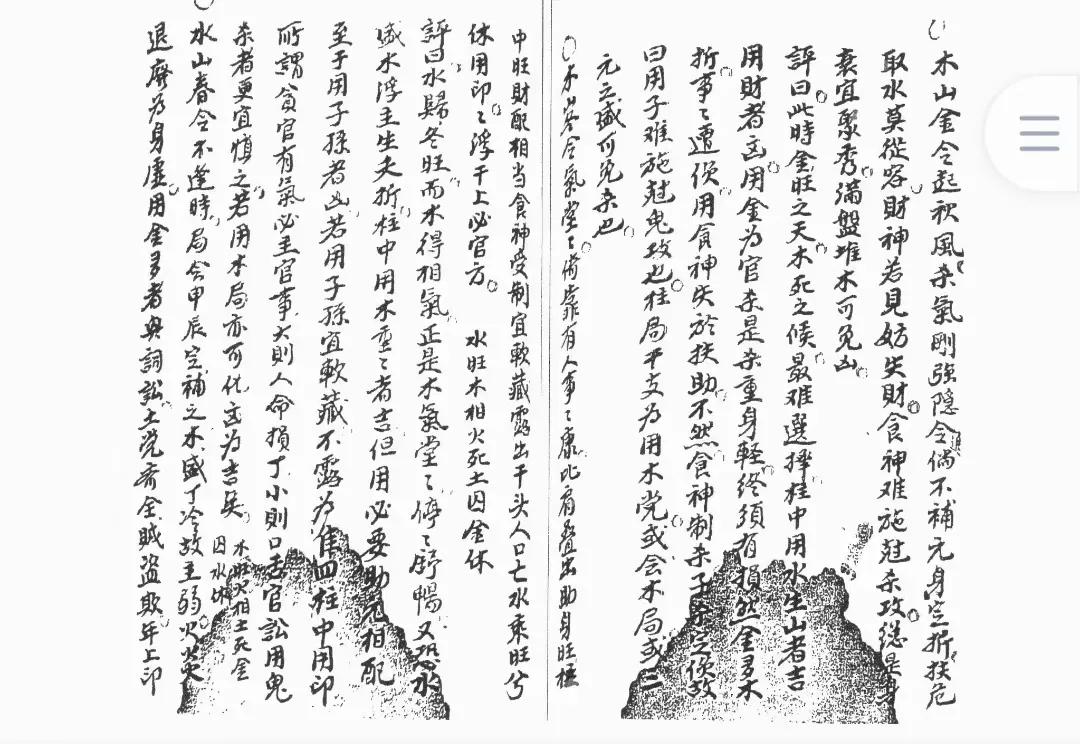 木山金令起秋風杀氣剛強隐令倘不補元身定折扶危
取水莫從容財神若見妨失財食神难施尅杀攻総是身
衰宜聚秀满盤堆木可免凶
評曰此時金旺之天木死之候最难選擇柱中用水生山者吉
用財者凶用金為官杀是杀重身輕终须有損然金多木
折事〻遭傎用食神失於扶助不然食神制杀子杀之傎故
曰用子难施尅鬼攻也柱局干支為用木党或会木局或三
元立盛可免杀也
木冬令氣堂〻倚靠有人事〻康比肩叠出助身旺極
中旺財配相当食神受制宜軟藏露出干头人口亡水乘旺兮
休用印〻浮干上必官方
水旺木相火死土囚金休
評曰水歸冬旺而木得相氣正是木氣堂〻停〻舒暢又恐水
盛木浮主生夭折柱中用木重〻者吉但用必要助元相配
至于用子孫者凶若用子孫宜軟藏不露為隹四柱中用印
所謂貪官有氣必主官事大則人命損丁小則口舌官訟用鬼
杀者更宜慎之若用木局亦可化凶為吉矣
木旺火相土死金
囚水休
水山春令不逢時局会甲辰定補之木盛丁冷故主弱火炎
退废為身虚用金多者興詞訟土党斉全贼盗欺年上印